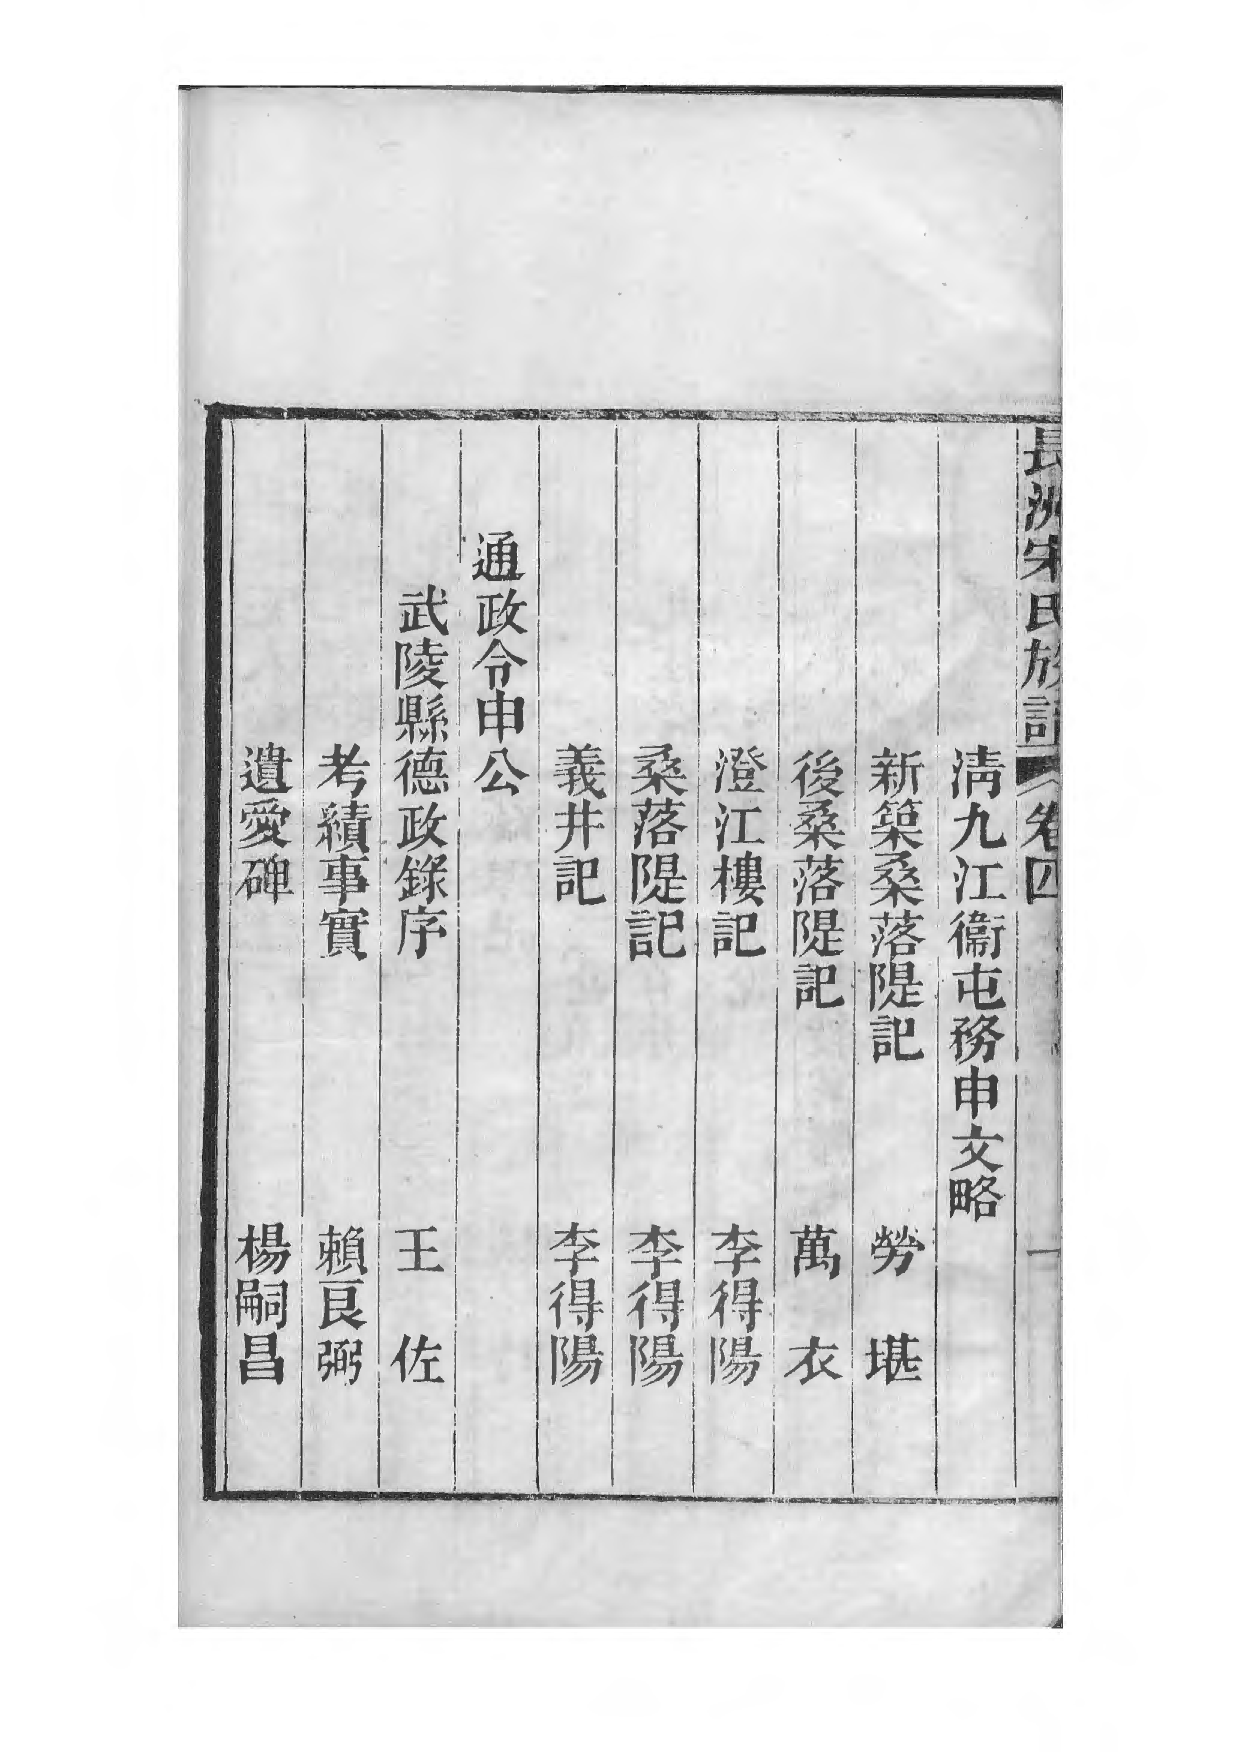 長洲宋氏族譜 卷四 一
淸九江衞屯務申文略
新築桑落隄記 勞堪
後桑落隄記 萬衣
澄江樓記 李得陽
桑落隄記 李得陽
義井記 李得陽
通政令申公
武陵縣德政錄序 王佐
考績事實 賴良弼
遺愛碑 楊嗣昌